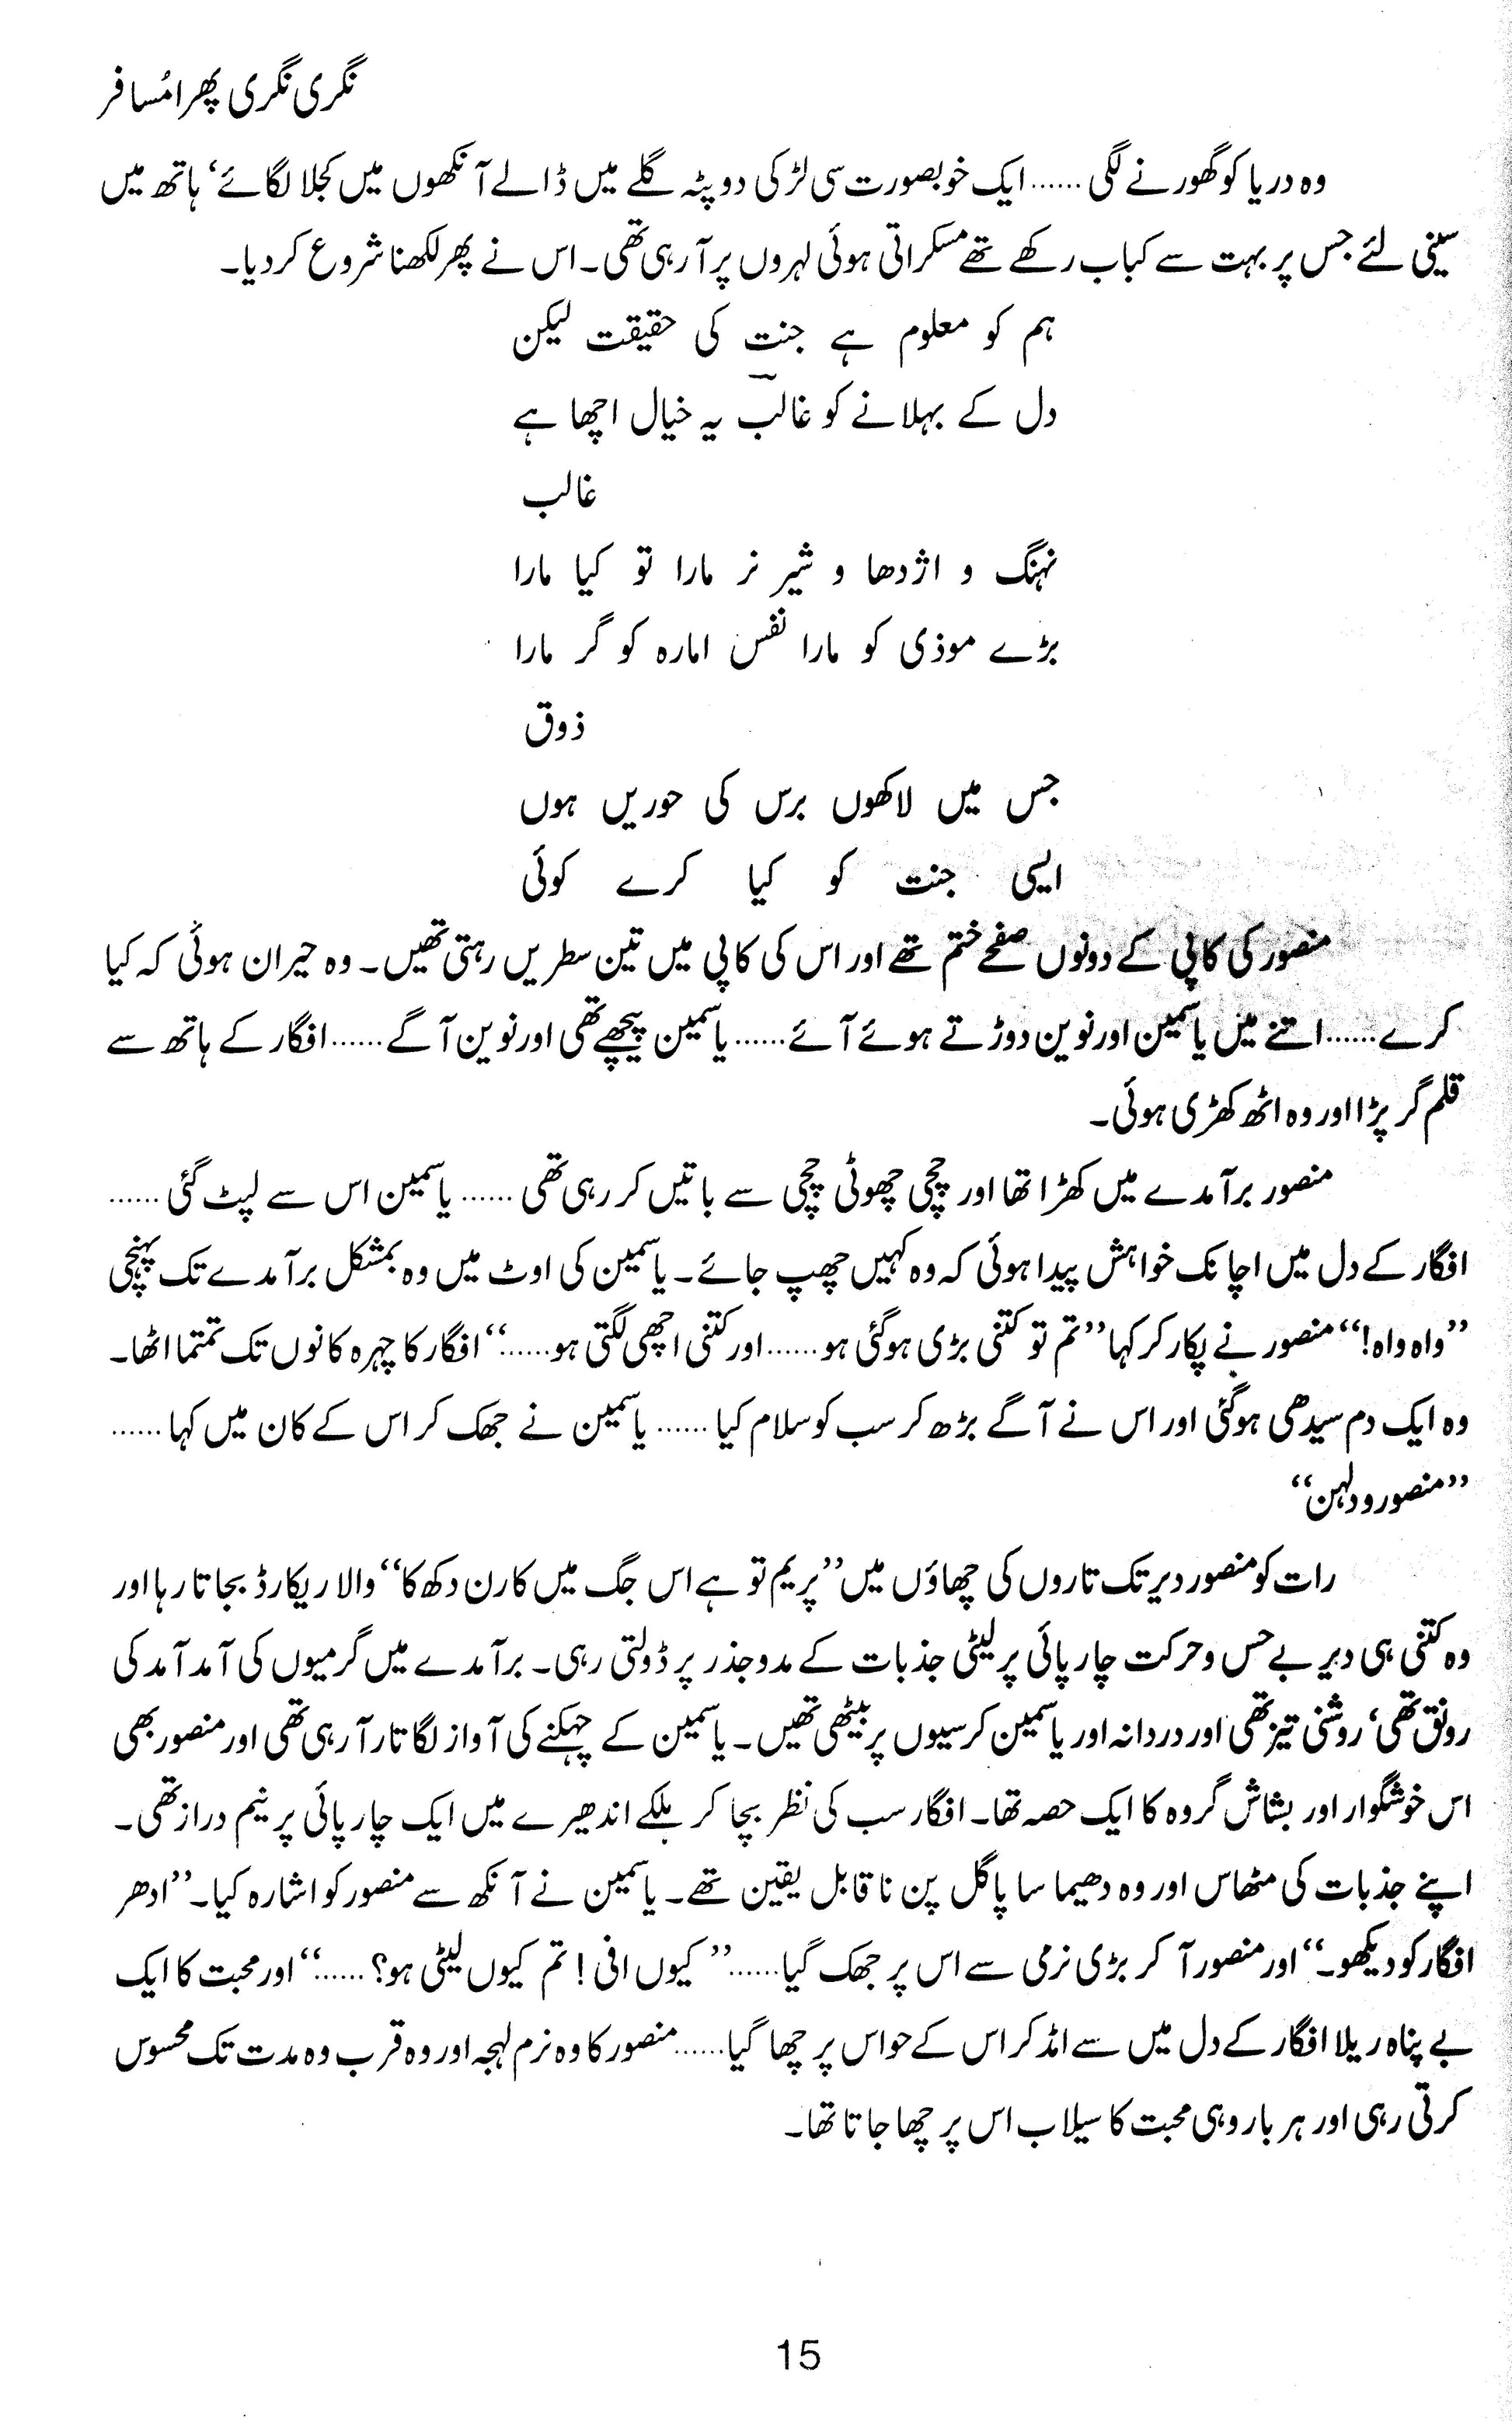 نگری نگری پھرا مُسافر
وہ دریا کو گھورنے لگی ...... ایک خوبصورت سی لڑکی دوپٹہ گلے میں ڈالے آنکھوں میں کجلا لگائے، ہاتھ میں
سینی لئے جس پر بہت سے کباب رکھے تھے مسکراتی ہوئی لہروں پر آ رہی تھی۔ اس نے پھر لکھنا شروع کر دیا۔
ہم کو معلوم ہے جنت کی حقیقت لیکن
دل کے بہلانے کو غالبؔ یہ خیال اچھا ہے
غالب
نہنگ و اژدھا و شیر نر مارا تو کیا مارا
بڑے موذی کو مارا نفس امارہ کو گر مارا
ذوق
جس میں لاکھوں برس کی حوریں ہوں
ایسی جنت کو کیا کرے کوئی
منصور کی کاپی کے دونوں صفحے ختم تھے اور اس کی کاپی میں تین سطریں رہتی تھیں۔ وہ حیران ہوئی کہ کیا
کرے...... اتنے میں یاسمین اور نوین دوڑتے ہوئے آئے...... یاسمین پیچھے تھی اور نوین آگے...... افگار کے ہاتھ سے
قلم گر پڑا اور وہ اٹھ کھڑی ہوئی۔
منصور برآمدے میں کھڑا تھا اور چچی چھوٹی چچی سے باتیں کر رہی تھی ...... یاسمین اس سے لپٹ گئی ......
افگار کے دل میں اچانک خواہش پیدا ہوئی کہ وہ کہیں چھپ جائے۔ یاسمین کی اوٹ میں وہ بمشکل برآمدے تک پہنچی
”واہ واہ!“ منصور نے پکار کر کہا ”تم تو کتنی بڑی ہو گئی ہو...... اور کتنی اچھی لگتی ہو......“ افگار کا چہرہ کانوں تک تمتما اٹھا۔
وہ ایک دم سیدھی ہو گئی اور اس نے آگے بڑھ کر سب کو سلام کیا ...... یاسمین نے جھک کر اس کے کان میں کہا ......
”منصور و دلہن“
رات کو منصور دیر تک تاروں کی چھاؤں میں ”پریم تو ہے اس جگ میں کارن دکھ کا“ والا ریکارڈ بجاتا رہا اور
وہ کتنی ہی دیر بے حس و حرکت چارپائی پر لیٹی جذبات کے مدوجذر پر ڈولتی رہی۔ برآمدے میں گرمیوں کی آمد آمد کی
رونق تھی، روشنی تیز تھی اور دردانہ اور یاسمین کرسیوں پر بیٹھی تھیں۔ یاسمین کے چہکنے کی آواز لگاتار آ رہی تھی اور منصور بھی
اس خوشگوار اور بشاش گروہ کا ایک حصہ تھا۔ افگار سب کی نظر بچا کر ہلکے اندھیرے میں ایک چارپائی پر نیم دراز تھی۔
اپنے جذبات کی مٹھاس اور وہ دھیما سا پاگل پن ناقابل یقین تھے۔ یاسمین نے آنکھ سے منصور کو اشارہ کیا۔ ”ادھر
افگار کو دیکھو۔“ اور منصور آ کر بڑی نرمی سے اس پر جھک گیا...... ”کیوں افی! تم کیوں لیٹی ہو؟ ......“ اور محبت کا ایک
بے پناہ ریلا افگار کے دل میں سے امڈ کر اس کے حواس پر چھا گیا...... منصور کا وہ نرم لہجہ اور وہ قرب وہ مدت تک محسوس
کرتی رہی اور ہر بار وہی محبت کا سیلاب اس پر چھا جاتا تھا۔
15